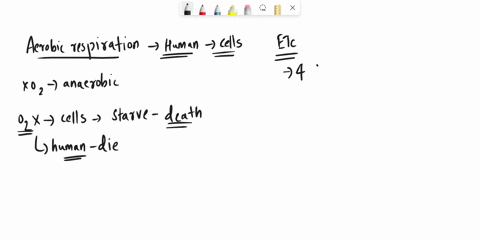 Aerobic respiration → Human → cells
ETC
→ 4
x O₂ → anaerobic
O₂ x → cells → starve - death
↳ human - die